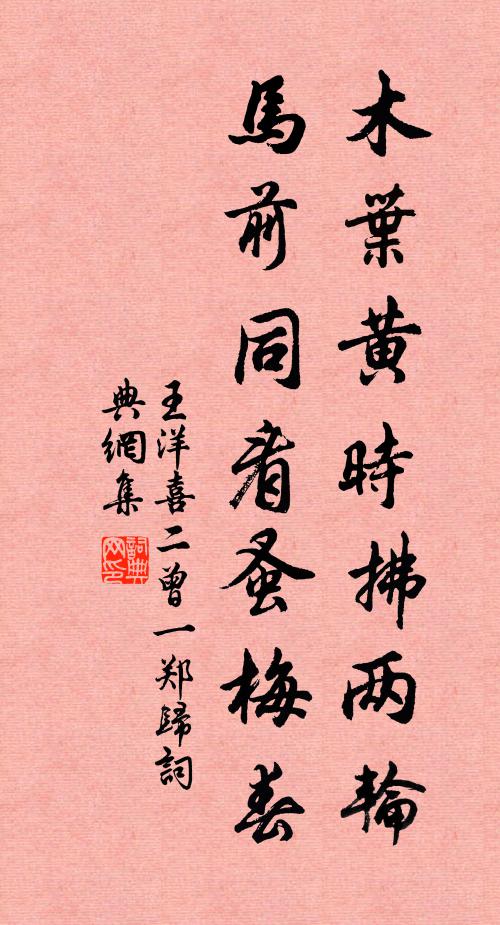 木葉黃時拂两輪
馬前同看蚤梅春
王洋喜二曾一郑歸詞
典網集
詞典网印